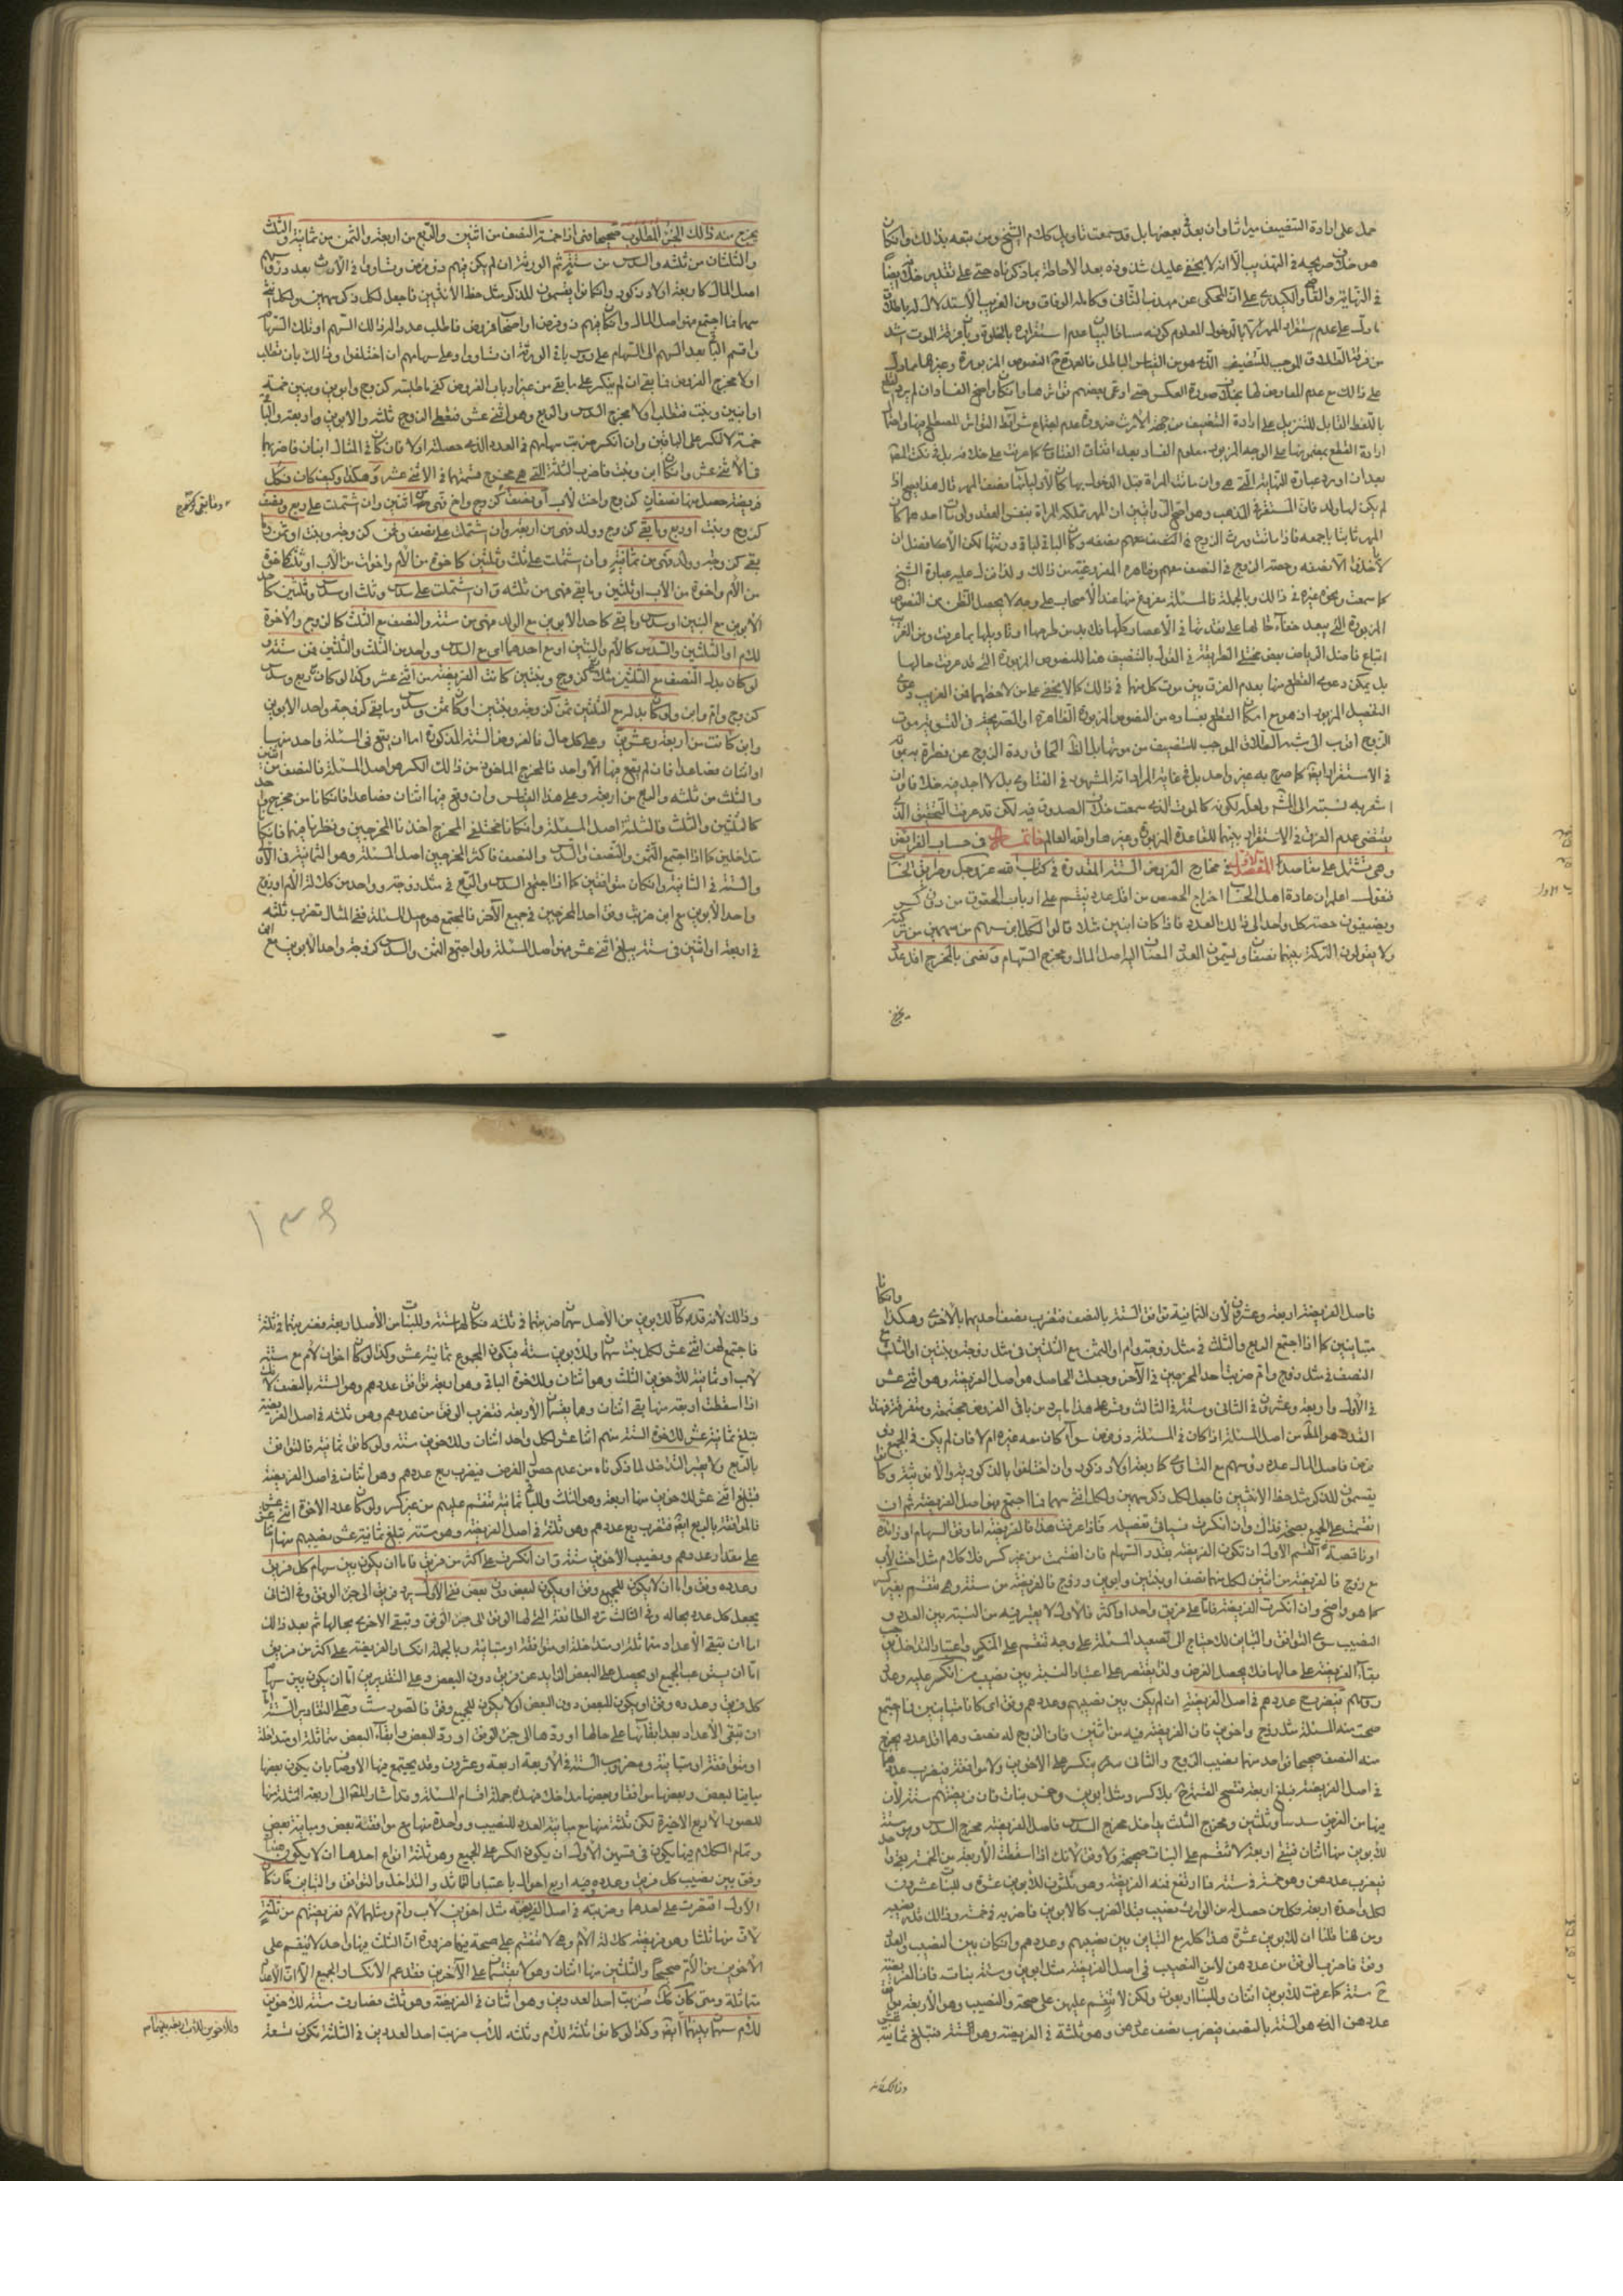 حمل على ارادة التنصيف ميراثا وان بعد في بعضها بل قد سمعت تاويل كلام الشيخ ومن تبعه بذلك وان كان
هو خلاف صريحه في التهذيب الا انه لا يخفى عليك شذوذه بعد الاحاطة بما ذكرناه حتى على تقدير خلاف
في النهاية والقاضي والكيدري على ان المحكي عن مهذب الثاني وكامله الوفاق ومن الغريب الاستدلال له باطلاق
ما دل على عدم استقرار المهر الا بالدخول المعلوم كونه مساقا لبيان عدم استقراره بالخلوة وبان فرقة الموت اشد
من فرقة الطلاق الموجب للتنصيف الذي هو من القياس الباطل فالعمدة ح النصوص المزبورة وغيرها مما دل
على ذلك مع عدم المعارض لها بخلاف صورة العكس حتى ادعى بعضهم تواترها وان كان واضح الفساد ان لم يرد
باللفظ القابل للتنزيل على ارادة التنصيف من جهة الارث ضرورة عدم اجتماع شرائط التواتر المصطلح فيها واحتمال
ارادة القطع بمضمونها على الوجه المزبور معلوم الفساد بعد اتفاق الفتاوى كما عرفت على خلافه بل في نكت المصنف
بعد ان اورد عبارة النهاية التي هي وان ماتت المراة قبل الدخول بها كان لاوليائها نصف المهر قال هذا يصح اذا
لم يكن لها ولد فان المستقر في المذهب وهو اصح الروايتين ان المهر تملكه المراة بنفس العقد ولو مات احدهما كان
المهر ثابتا باجمعه فاذا ماتت ورث الزوج في النصف منهم نصفه وكان الباقي لباقي ورثتها لكن الاصحاب
لاخذنا الا نصفه وحصة الزوج في النصف منهم وظاهره المفروغية من ذلك ولذا نزل عليه عبارة الشيخ
كما سمعت ونحوه غيره في ذلك وبالجملة فالمسئلة مفروغ منها عند الاصحاب على وجه لا يحصل الظن من النصوص
المزبورة التي يبعد خفاء حالها على نقدتها في الاعصار كلها فلا بد من طرحها او تاويلها بما عرفت ومن الغريب
اتباع فاضل الرياض بعض مختلي الطريقة في القول بالتنصيف هنا للنصوص المزبورة التي قد عرفت حالها
بل يمكن دعوى القطع منها بعدم الفرق بين موت كل منهما في ذلك كما لا يخفى على من لاحظها فمن الغريب دعوى
التفصيل المزبور اذ هو مع امكان القطع بفساده من النصوص المزبورة الظاهرة او الصريحة في التسوية بين موت
الزوج اقرب الى شبه الطلاق الموجب للتنصيف من موتها بل الظاهر الحاق ردة الزوج عن فطرة بموته
في الاستقرار ايضا كما صرح به غير واحد بل في غاية المراد انه المشهور في الفتاوى بل لا اجد فيه خلافا وان
اشعر به نسبته الى الشهرة ولعله لكونه كالموت الذي سمعت خلاف الصدوق فيه لكن قد عرفت التحقيق الذي
يقتضي عدم الفرق في الاستقرار بينهما للقاعدة المزبورة وغيرها والله العالم خاتمة في حساب الفرائض
وهي تشتمل على مقاصد المقصد الاول في مخارج الفروض الستة المقدرة في كتاب الله عز وجل وطريق الحساب
فنقول اعلم ان عادة اهل الحساب اخراج الحصص من اقل عدد ينقسم على ارباب الحقوق من دون كسر
ويضيفون حصة كل واحد الى ذلك العدد فاذا كان ابنين مثلا قالوا لكل ابن سهم من سهمين من تركته
ولا يقولون التركة بينهما نصفان ويسمون العدد المضاف اليه اصل المال ومخرج السهام ونعني بالمخرج اقل عدد
يخرج
يخرج منه ذلك الجزء المطلوب صحيحا فهي اذا خمسة النصف من اثنين والربع من اربعة والثمن من ثمانية والثلث
والثلثان من ثلثة والسدس من ستة ثم الورثة ان لم يكن فيهم ذو فرض وتساووا في الارث فعدد رؤوسهم
اصل المال كاربعة اولاد ذكور وان كانوا يقتسمون للذكر مثل حظ الانثيين فاجعل لكل ذكر سهمين ولكل انثى
سهما فما اجتمع فهو اصل المال وان كان فيهم ذو فرض او اصحاب فروض فاطلب عدداً له ذلك السهم او تلك السهام
واقسم الباقي بعد السهم او السهام على رؤوس باقي الورثة ان تساووا وعلى سهامهم ان اختلفوا وذلك بان تطلب
اولا مخرج الفروض فما بقى ان لم ينكسر على ما بقى من غير ارباب الفروض كفى ما طلبته كزوج وابوين وبنين خمسة
او ابنين وبنت فتطلب اولا مخرج السدس والربع وهو اثنى عشر فتعطي الزوج ثلثة والابوين اربعة والباقي
خمسة لا تنكسر على الباقين وان انكسر ضربت سهامهم في العدد الذي حصلته اولا فان كان في المثال ابنان فاضربهما
في الاثنى عشر وان كان ابن وبنت فاضرب الثلثة التي هي مخرج قسمتهما في الاثنى عشر وهكذا وكيف كان فكل
فريضة حصل فيها نصفان كزوج واخت لاب او نصف كزوج واخ فهي من اثنين وان اشتملت على ربع ونصف
وما بقى كزوج
كزوج وبنت او ربع وما بقى كزوج وولد فهي من اربعة وان اشتملت على نصف وثمن كزوجة وبنت او ثمن وما
بقى كزوجة وولد فهي من ثمانية وان اشتملت على ثلث وثلثين كاخوة من الام واخوات من الاب او ثلث كاخوة
من الام واخوة من الاب او ثلثين وما بقى فهي من ثلثة وان اشتملت على سدس وثلث او سدس وثلثين كاحد
الابوين مع البنتين او سدس وما بقى كاحد الابوين مع الولد فهي من ستة والنصف مع الثلث كالزوج والاخوة
للام او الثلثين والسدس كالام والبنتين او مع احدهما اي مع السدس وواحد من الثلث والثلثين فمن ستة
لو كان بدل النصف مع الثلثين ثلث كزوج وبنتين كانت الفريضة من اثنى عشر وكذا لو كان ربع وسدس
كزوج وام وابن ولو كان بدل ربع الثلثين ثمن كزوجة وبنتين او كان ثمن وسدس وما بقى كزوجة واحد الابوين
وابن كانت من اربعة وعشرين وعلى كل حال فالفروض الستة المذكورة اما ان يقع في المسئلة واحد منها
او اثنان فصاعدا فان لم يقع فيها الا واحد فالمخرج الماخوذ من ذلك الكسر هو اصل المسئلة فالنصف من اثنين
والثلث من ثلثة والربع من اربعة وعلى هذا القياس وان وقع فيها اثنان فصاعدا فان كانا من مخرج واحد
كالثلثين والثلث فالثلثة اصل المسئلة وان كانا مختلفي المخرج اخذنا المخرجين ونظرنا فيهما فان كانا
متداخلين كما اذا اجتمع الثمن والنصف او السدس والنصف فاكثر المخرجين اصل المسئلة وهو الثمانية في الاول
والستة في الثانية وان كان متوافقين كما اذا اجتمع السدس والربع في مثل زوجة وواحد من كلالة الام او زوج
واحد الابوين مع ابن ضربت وفق احد المخرجين في جميع الآخر فالمجتمع هو اصل المسئلة ففي المثال تضرب ثلثة
في اربعة او اثنين في ستة يبلغ اثنى عشر فهو اصل المسئلة ولو اجتمع الثمن والسدس كزوجة واحد الابوين مع ابن
فاصل الفريضة اربعة وعشرون لان الثمانية توافق الستة بالنصف فتضرب نصف احدهما بالاخرى وهكذا وان كانا
متباينين كما اذا اجتمع الربع والثلث في مثل زوجة وام او الثمن مع الثلثين في مثل زوجة وبنتين او الثلث مع
النصف في مثل زوج وام ضربت احد المخرجين في الآخر وجعلت الحاصل هو اصل الفريضة وهو اثنى عشر
في الاول واربعة وعشرون في الثاني وستة في الثالث وقس على هذا ما يرد من باقي الفروض مجتمعة ومتفرقة فهذا
القدر هو المراد من اصل المسئلة اذا كان في المسئلة ذو فرض سواء كان معه غيره ام لا فان لم يكن في الجميع ذو
فرض فاصل المال عدد رؤسهم مع التساوي كاربعة اولاد ذكور وان اختلفوا بالذكورية والانوثية وكانوا
يقتسمون للذكر مثل حظ الانثيين فاجعل لكل ذكر سهمين ولكل انثى سهما فما اجتمع فهو اصل الفريضة ثم ان
انقسمت على الجميع بصحة فذاك وان انكسرت فسياتي تفصيله فاذا عرفت هذا فالفريضة اما وفق السهام او زائدة
او ناقصة القسم الاول ان تكون الفريضة بقدر السهام فان انقسمت من غير كسر فلا كلام مثل اخت لاب
مع زوج فالفريضة من اثنين لكل منهما نصف او بنتين وابوين وزوج فالفريضة من ستة وهي تنقسم بغير كسر
كما هو واضح وان انكسرت الفريضة فاما على فريق واحد او اكثر فالاول لا يعتبر فيه من النسبة بين العدد و
النصيب سوى التوافق والتباين للاحتياج الى تصعيد المسئلة على وجه تنقسم على المنكسر واعتبار التداخل يوجب
بقاء الفريضة على حالها فلا يحصل الغرض ولذا يقتصر على اعتبار النسبة بين نصيب من انكسر عليه وعدد
رؤسهم فيضرب عددهم في اصل الفريضة ان لم يكن بين نصيبهم وعددهم وفق اي كانا متباينين فما اجتمع
صحت منه المسئلة مثل زوج واخوين فان الفريضة فيه من اثنين فان الزوج له نصف وهما اقل عدد يخرج
منه النصف صحيحا فواحد منها نصيب الزوج والثاني سهم ينكسر على الاخوين ولا موافقة فيضرب عددهما
في اصل الفريضة تبلغ اربعة فتصح القسمة ح بلا كسر ومثل ابوين وخمس بنات فان فريضتهم ستة لان
فيها من الفروض سدسا وثلثين ومخرج الثلث يداخل مخرج السدس فاصل الفريضة مخرج السدس وهو ستة
للابوين منها اثنان فتبقى اربعة لا تنقسم على البنات صحيحة ولا وفق لانك اذا اسقطت الاربعة من الخمسة بقى واحد
فيضرب عددهن وهو خمسة في ستة فما ارتفع فمنه الفريضة وهو ثلثون للابوين عشرة وللبنات عشرون
لكل واحدة اربعة فكل من حصل له من الوراث نصيب قبل الضرب كالابوين فاضربه في خمسة وذلك قدر نصيبه
ومن هنا قلنا ان للابوين عشرة هذا كله مع التباين بين نصيبهم وعددهم وان كان بين النصيب والعدد
وفق فاضرب الوفق من عددهن لا من النصيب في اصل الفريضة مثل ابوين وستة بنات فان الفريضة
ح ستة كما عرفت للابوين اثنان وللبنات اربعة ولكن لا ينقسم عليهن على صحة والنصيب وهو الاربعة يوافق
عددهن الذي هو الستة بالنصف فيضرب نصف عددهن وهو ثلثة في الفريضة وهو الستة فتبلغ ثمانية عشر
وذلك لانه
وذلك لانه قد كان للابوين من الاصل سهمان ضربتهما في ثلثة فكان لهما ستة وللبنات من الاصل اربعة فضربتها في ثلثة
فاجتمع لهن اثنى عشر لكل بنت سهمان وللابوين ستة فيكون المجموع ثمانية عشر وكذا لو كان اخوان لام مع ستة
لاب او ثمانية للاخوين الثلث وهو اثنان وللاخوة الباقي وهو اربعة توافق عددهم وهو الستة بالنصف لانك
اذا اسقطت اربعة منها بقى اثنان وهما يفنيان الاربعة فتضرب الوفق من عددهم وهو ثلثة في اصل الفريضة
تبلغ ثمانية عشر للاخوة الستة منهم اثنا عشر لكل واحد اثنان وللاخوين ستة ولو كانوا ثمانية فالتوافق
بالربع ولا يعتبر التداخل لما ذكرناه من عدم حصول الغرض فيضرب ربع عددهم وهو اثنان في اصل الفريضة
فتبلغ اثنى عشر للاخوين منها اربعة وهو الثلث والباقي ثمانية تنقسم عليهم من غير كسر ولو كان عدد الاخوة اثنى عشر
فالموافقة بالربع ايضا فتضرب ربع عددهم وهو ثلثة في اصل الفريضة وهو ستة تبلغ ثمانية عشر نصيبهم منها اثنا عشر
على مقدار عددهم ونصيب الاخوين ستة وان انكسرت على اكثر من فريق فاما ان يكون بين سهام كل فريق
وعدده وفق واما ان لا يكون للجميع وفق او يكون لبعض دون بعض ففي الاول يرد كل فريق الى جزء الوفق وفي الثاني
يجعل كل عدد بحاله وفي الثالث ترد الطائفة التي لها الوفق الى جزء الوفق وتبقى الاخرى بحالها ثم بعد ذلك
اما ان تبقى الاعداد متماثلة او متداخلة او متوافقة او متباينة وبالجملة انكسار الفريضة على اكثر من فريق
اما ان يستوعب الجميع او يحصل على البعض الزايد عن فريق دون البعض وعلى التقديرين اما ان يكون بين سهام
كل فريق وعدده وفق او يكون للبعض دون البعض او لا يكون للجميع وفق فالصور ست وعلى التقادير الستة اما
ان تبقى الاعداد بعد ابقائها على حالها او ردها الى جزء الوفق او رد البعض وابقاء البعض متماثلة او متداخلة
او متوافقة او متباينة ومضروب الستة في الاربعة اربعة وعشرون وقد يجتمع فيها الاوصاف بان يكون بعضها
مباينا لبعض وبعضها موافقا وبعضها مداخلا فهذه جملة اقسام المسئلة وقد اشار المصنف الى اربعة امثلة منها
للصور الاربع الاخيرة لكن ثلثة منها مع مباينة العدد للنصيب وواحدة منها مع موافقة بعض ومباينة بعض
وتمام الكلام فيها يكون في قسمين الاول ان يكون الكسر على الجميع وهو ثلثة انواع احدها ان لا يكون هناك
وفق بين نصيب كل فريق وعدده وفيه اربع احوال باعتبار التماثل والتداخل والتوافق والتباين فان كان
الاول اقتصرت على احدهما وضربته في اصل الفريضة مثل اخوين لاب وام ومثلهما لام فريضتهم من ثلثة
لان فيها ثلثا وهو فريضة كلالة الام وهي لا تنقسم على صحة فيما مر ضرورة ان الثلث منها واحد لا ينقسم على
الاخوين من الام صحيحا والثلثين منها اثنان وهو لا ينقسم على الآخرين فقد عم الانكسار الجميع الا ان الاعداد
متماثلة ومتى كان كذلك ضربت احد العددين وهو اثنان في الفريضة وهو ثلث فصارت ستة للاخوين
للام سهمان بينهما ايضا وكذا لو كانوا ثلثة لام وثلثة لاب ضربت احد العددين في الثلثة تكون تسعة
وللاخوين للاب اربعة بينهما